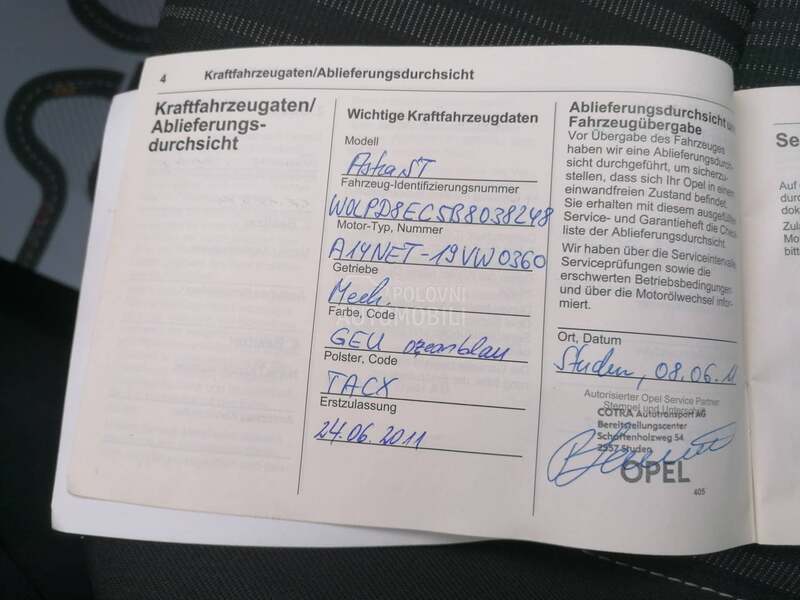 4 Kraftfahrzeugaten/Ablieferungsdurchsicht
Kraftfahrzeugaten/
Ablieferungs-
durchsicht
Wichtige Kraftfahrzeugdaten
Modell
Astra ST
Fahrzeug-Identifizierungsnummer
W0LPD8EC5B8038248
Motor-Typ, Nummer
A14NET-19VW0360
Getriebe
Mech.
Farbe, Code
GEU ozeanblau
Polster, Code
TACX
Erstzulassung
24.06.2011
POLOVNI
AUTOMOBILI
Ablieferungsdurchsicht
Fahrzeugübergabe
Vor Übergabe des Fahrzeuges
haben wir eine Ablieferungsdurch-
sicht durchgeführt, um sicherzu-
stellen, dass sich Ihr Opel in einem
einwandfreien Zustand befindet.
Sie erhalten mit diesem ausgefüllten
Service- und Garantieheft die Check-
liste der Ablieferungsdurchsicht
Wir haben über die Serviceintervalle,
Serviceprüfungen sowie die
erschwerten Betriebsbedingungen
und über die Motorölwechsel infor-
miert.
Ort, Datum
Studen, 08.06.11
Autorisierter Opel Service Partner
Stempel und Unterschrift
COTRA Autotransport AG
Bereitstellungscenter
Schaftenholzweg 54
2557 Studen
OPEL
405
Se
Auf
durc
dok
Zula
Mo
bitt